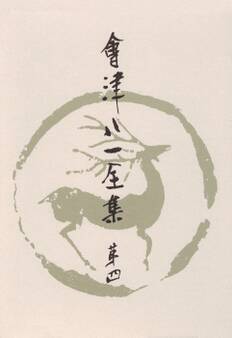 會津八一全集 第四